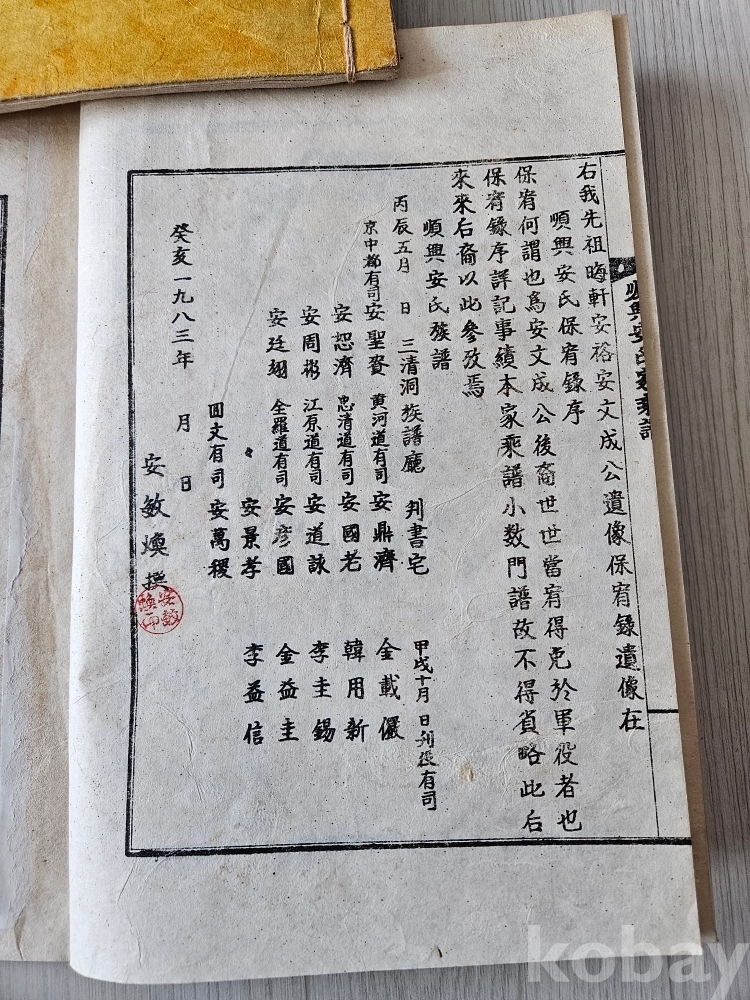 順興安氏家乘譜
右我先祖晦軒安裕安文成公遺像保宥錄遺像在
順興安氏保宥錄序
保宥何謂也爲安文成公後裔世世當宥得免於軍役者也
保宥錄序詳記事績本家乘譜小数門譜故不得省略此后
來來后裔以此參攷焉
順興安氏族譜
丙辰五月 日 三淸洞族譜廳 判書宅 甲戌十月 日刋役有司
京中都有司安聖賚 黃河道有司安鼎濟 金載儼
安恕濟 忠淸道有司安國老 韓用新
安周彬 江原道有司安道詠 李圭錫
安廷翊 全羅道有司安彦國 金益圭
安景孝 李益信
圓文有司安萬稷
癸亥一九八三年 月 日
安敏煥撰
安敏煥印
kobay